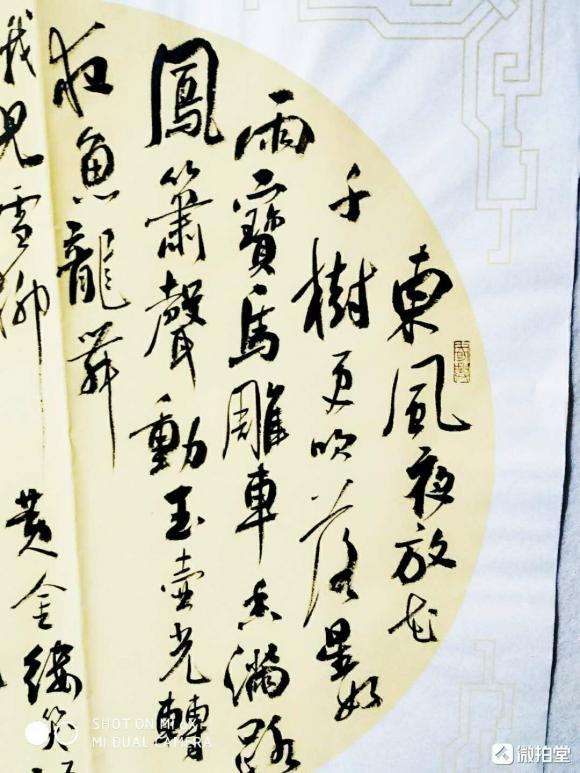 東風夜放花
千樹更吹落星如
雨寶馬雕車香滿路
鳳簫聲動玉壺光轉
夜魚龍舞
兒雪柳
黃金縷笑
SHOT ON MI 8
MI DUAL CAMERA
微拍堂